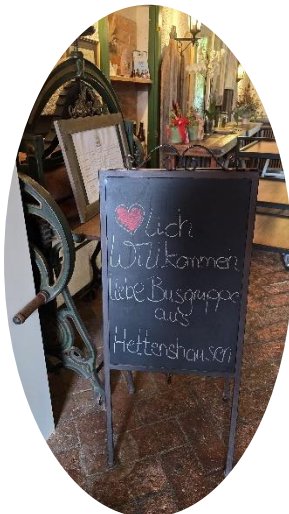 ❤lich
Willkommen
liebe Busgruppe
aus
Hettenshausen